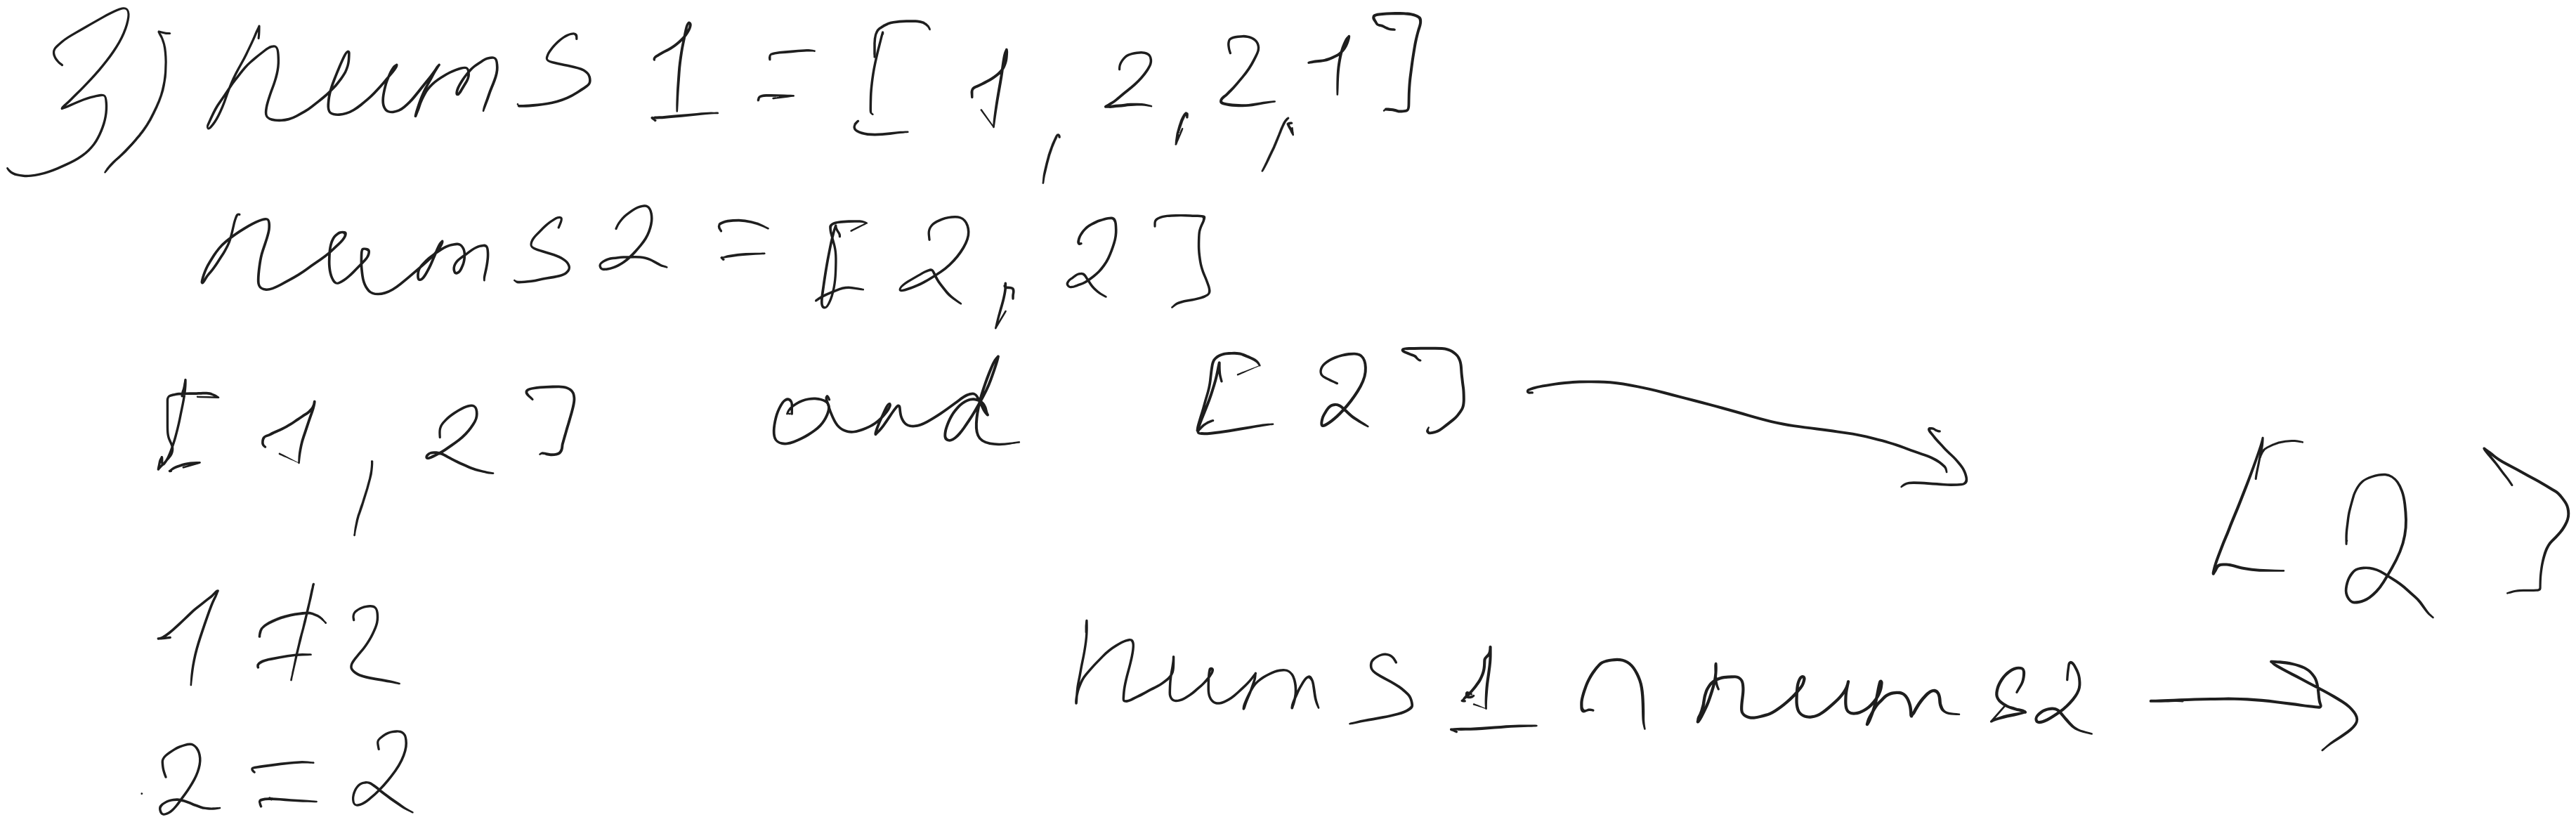 3) nums 1 = [1, 2, 2, 1]
nums 2 = [2, 2]
[1, 2] and [2] → [2]
1 ≠ 2
nums 1 ∩ nums 2 →
2 = 2